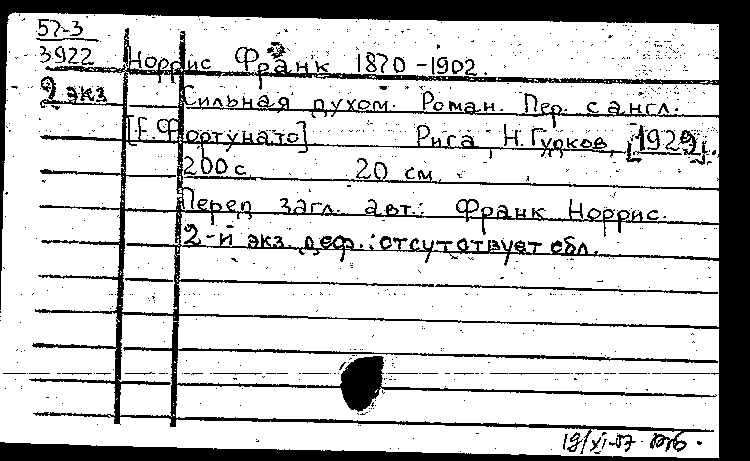 57-3
3922
2 экз
Норрис Франк 1870-1902.
Сильная духом. Роман. Пер. с англ.
[Е. Фортунато] Рига, Н. Гудков, [1929].
200 с. 20 см.
Перед загл. авт.: Франк Норрис.
2-й экз. деф.: отсутствует обл.
19/XI-57